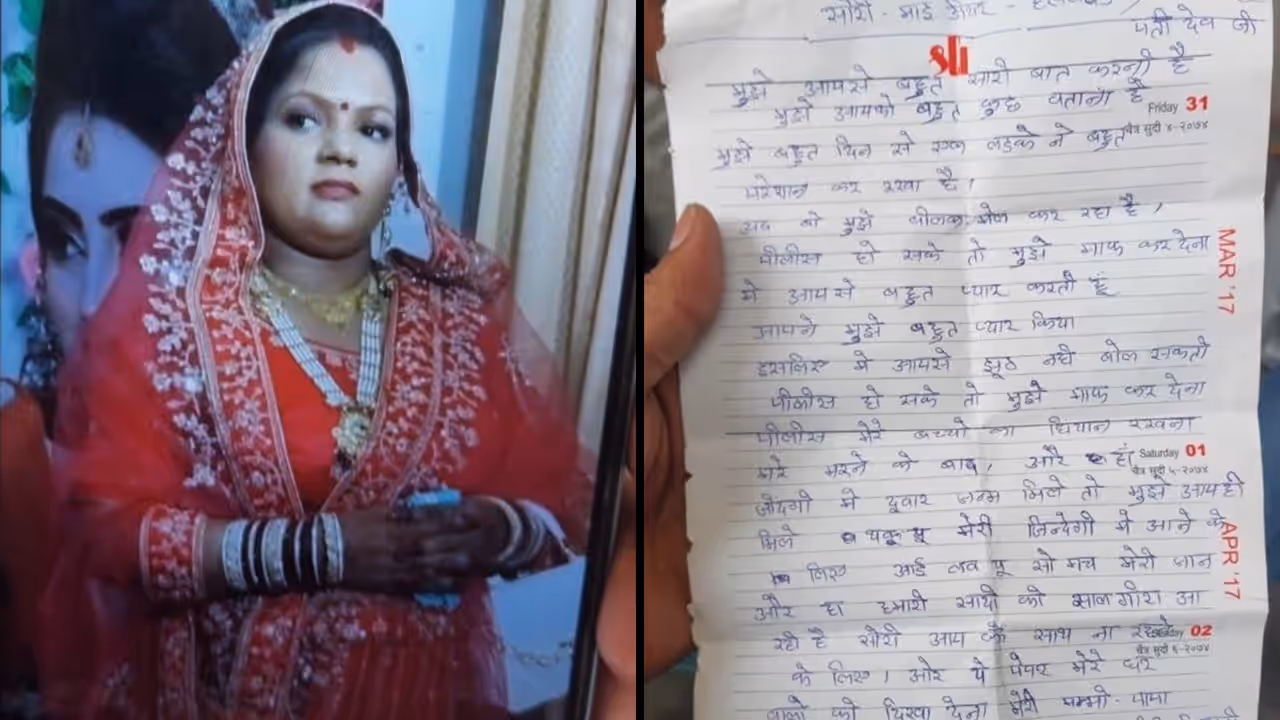 सोरी - माई डीयर - हसबेंड
पती देव जी
sli
मुझे आपसे बहुत सारी बात करनी है
मुझे आपको बहुत कुछ बताना है
Friday 31
चैत्र सुदी ४-२०७४
मुझे बहुत दिन से एक लड़के ने बहुत
परेशान कर रखा है,
अब वो मुझे बोलक मेल कर रहा है,
MAR '17
पीलीस हो सके तो मुझे माफ कर देना
मे आपसे बहुत प्यार करती हूं
आपने मुझे बहुत प्यार किया
इसलिए मे आपसे झूठ नही बोल सकती
पीलीस हो सके तो मुझे माफ कर देना
पीलीस मेरे बच्चो का धियान रखना
Saturday 01
चैत्र सुदी ५-२०७४
मेरे मरने के बाद, और हां
जीदगी मे दूबार जनम मिले तो मुझे आपही
मिले थकू यू मेरी जिन्देगी मे आने के
APR '17
लिए आई लव यू सो मच मेरी जान
और हा हमारी सादी की सालगीरा आ
रही है सोरी आप के साथ ना रहने
02
चैत्र सुदी ६-२०७४
के लिए, ओर ये पेपर मेरे घर
वालो को दिखा देना मेरी मम्मी - पापा